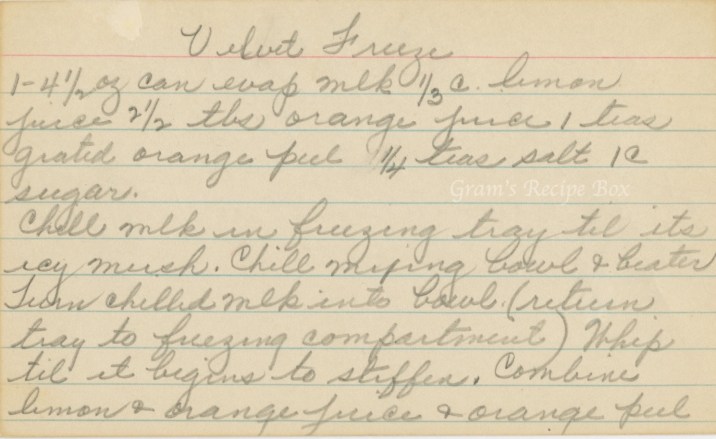 Velvet Freeze
1-4 1/2 oz can evap milk 1/3 c. lemon
juice 2 1/2 tbs orange juice 1 teas
grated orange peel 1/4 teas salt 1 c
sugar.
Gram's Recipe Box
Chill mlk in freezing tray til its
icy mush. Chill mixing bowl & beater
Turn chilled mlk into bowl (return
tray to freezing compartment) Whip
til it begins to stiffen. Combine
lemon & orange juice & orange peel